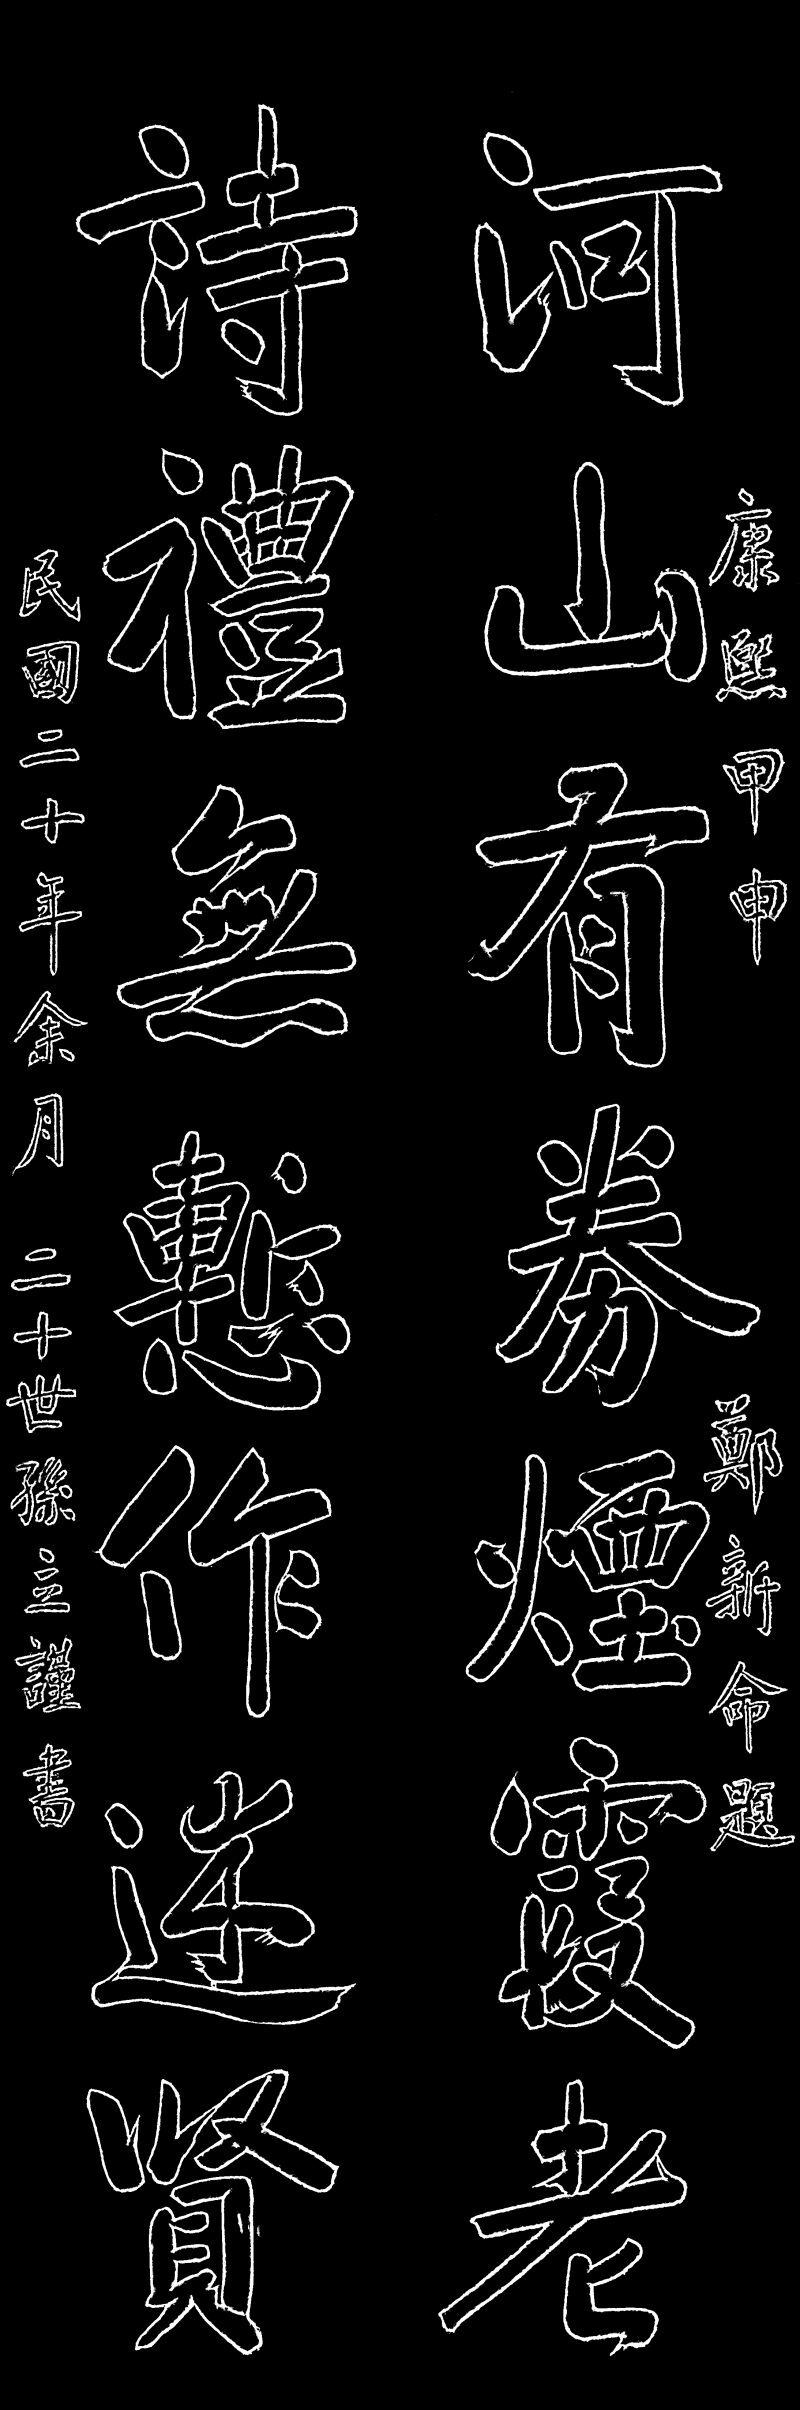 康熙甲申 鄭新命題
河山有券煙霞老
詩禮無慙作述賢
民國二十年余月 二十世孫立謹書